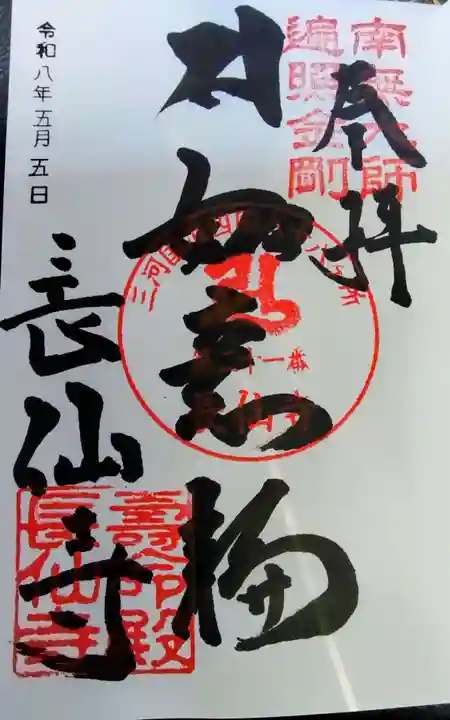 奉拝
南無大師
遍照金剛
如意輪
三河
十一番
長仙寺
壽命殿
長仙寺
令和八年五月五日